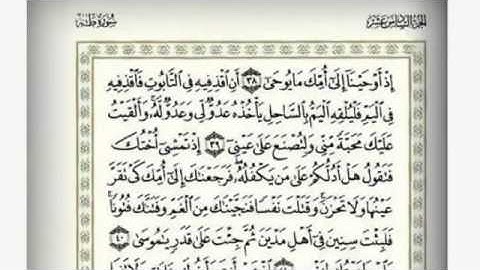 الجزء السادس عشر
سورة طه
إِذْ أَوْحَيْنَا إِلَىٰ أُمِّكَ مَا يُوحَىٰ ٣٨ أَنِ اقْذِفِيهِ فِي التَّابُوتِ فَاقْذِفِيهِ
فِي الْيَمِّ فَلْيُلْقِهِ الْيَمُّ بِالسَّاحِلِ يَأْخُذْهُ عَدُوٌّ لِّي وَعَدُوٌّ لَّهُ ۚ وَأَلْقَيْتُ
عَلَيْكَ مَحَبَّةً مِّنِّي وَلِتُصْنَعَ عَلَىٰ عَيْنِي ٣٩ إِذْ تَمْشِي أُخْتُكَ
فَتَقُولُ هَلْ أَدُلُّكُمْ عَلَىٰ مَن يَكْفُلُهُ ۖ فَرَجَعْنَاكَ إِلَىٰ أُمِّكَ كَيْ تَقَرَّ
عَيْنُهَا وَلَا تَحْزَنَ ۚ وَقَتَلْتَ نَفْسًا فَنَجَّيْنَاكَ مِنَ الْغَمِّ وَفَتَنَّاكَ فُتُونًا ۚ
فَلَبِثْتَ سِنِينَ فِي أَهْلِ مَدْيَنَ ثُمَّ جِئْتَ عَلَىٰ قَدَرٍ يَا مُوسَىٰ ٤٠